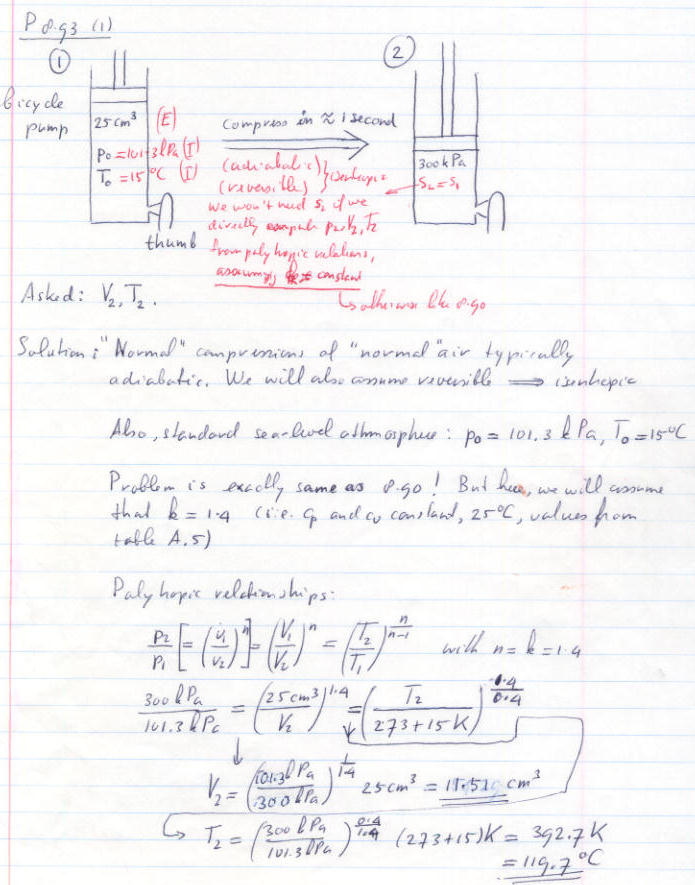 P 8.93 (1)
①
②
bicycle
pump
25 cm³ (E)
p₀ = 101.3 kPa (I)
T₀ = 15 °C (I)
thumb
Compress in ≈ 1 second
(adiabatic)
(reversible) } isentropic
we won't need s₂ if we
directly compute p₂, V₂, T₂
from polytropic relations,
assuming k constant
↳ otherwise like 8.90
300 kPa
s₂ = s₁
Asked: V₂, T₂.
Solution: "Normal" compressions of "normal" air typically
adiabatic. We will also assume reversible ⟹ isentropic
Also, standard sea-level athmosphere: p₀ = 101.3 kPa, T₀ = 15°C
Problem is exactly same as 8.90! But here, we will assume
that k = 1.4 (i.e. cp and cv constant, 25°C, values from
table A.5)
Polytropic relationships:
p₂/p₁ [= (v₁/v₂)ⁿ] = (V₁/V₂)ⁿ = (T₂/T₁)^(n/(n-1)) with n = k = 1.4
300 kPa/101.3 kPa = (25 cm³/V₂)^1.4 = (T₂/(273+15 K))^(1.4/0.4)
V₂ = (101.3 kPa/300 kPa)^(1/1.4) 25 cm³ = 11.51 cm³
T₂ = (300 kPa/101.3 kPa)^(0.4/1.4) (273+15)K = 392.7 K
= 119.7 °C